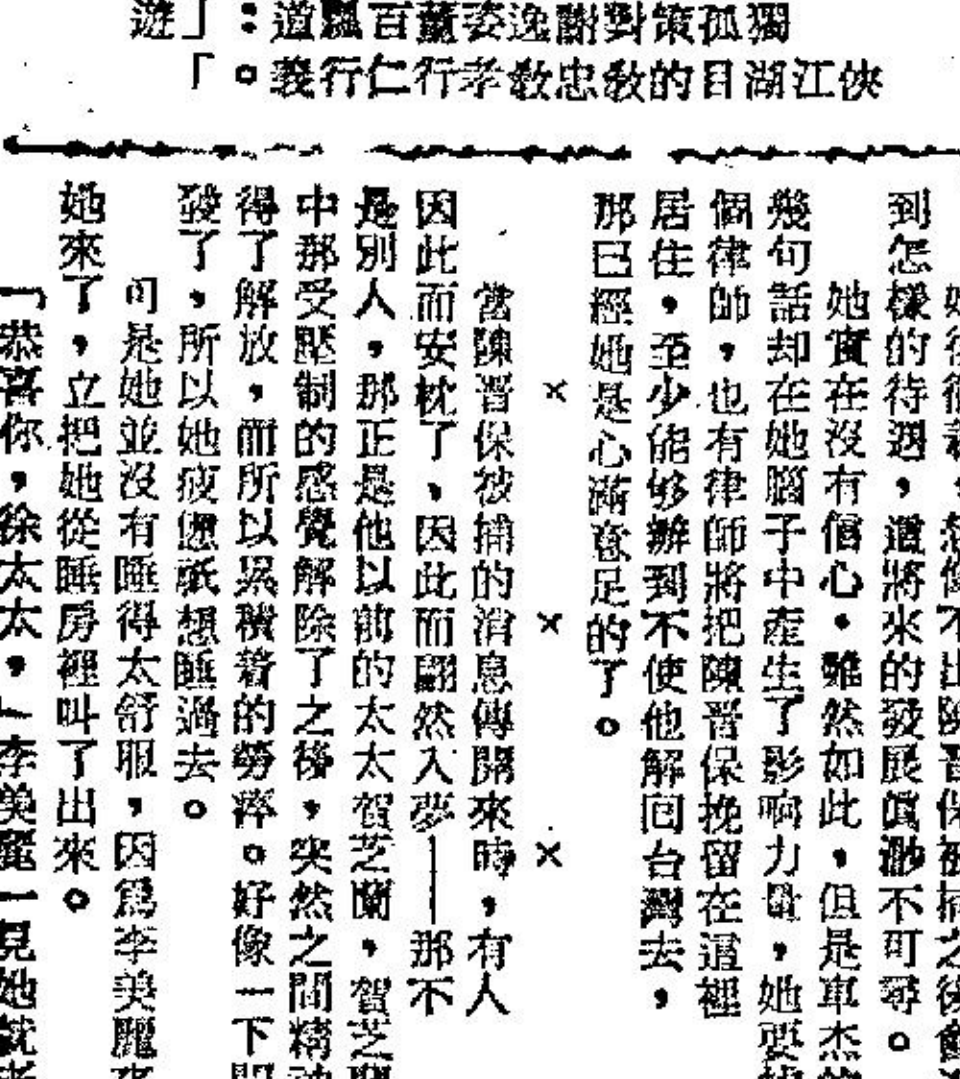 獨孤策對謝逸姿董百飄道：「遊
俠江湖目的敎忠敎孝行仁行義。」
想像不出陳晋保被捕之後會
到怎樣的待遇，這將來的發展眞渺不可尋。
她實在沒有信心。雖然如此，但是車杰
幾句話却在她腦子中產生了影响力量，她要
個律師，也有律師將把陳晋保挽留在這裡
居住，至少能够辦到不使他解回台灣去，
那已經她是心滿意足的了。
×　×　×
當陳晋保被捕的消息傳開來時，有人
因此而安枕了，因此而翩然入夢——那不
是別人，那正是他以前的太太賀芝蘭，賀芝蘭
中那受壓制的感覺解除了之後，突然之間精神
得了解放，而所以累積着的勞瘁。好像一下
發了，所以她疲憊祇想睡過去。
可是她並沒有睡得太舒服，因爲李美麗來
她來了，立把她從睡房裡叫了出來。
「恭喜你，徐太太，」李美麗一見她就